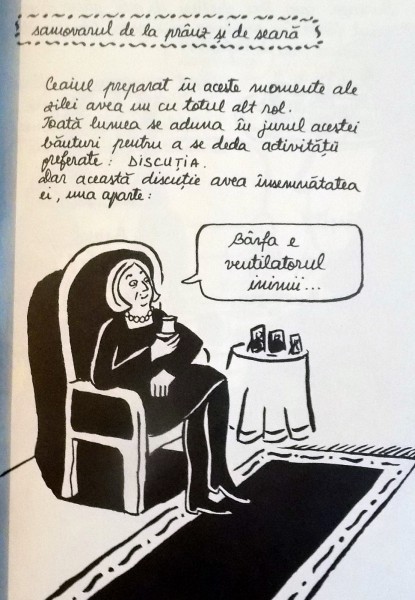 samovarul de la prânz și de seară
Ceaiul preparat în aceste momente ale
zilei avea un cu totul alt rol.
Toată lumea se aduna în jurul acestei
băuturi pentru a se deda activității
preferate: DISCUȚIA.
Dar această discuție avea însemnătatea
ei, una aparte:
Bârfa e
ventilatorul
inimii...